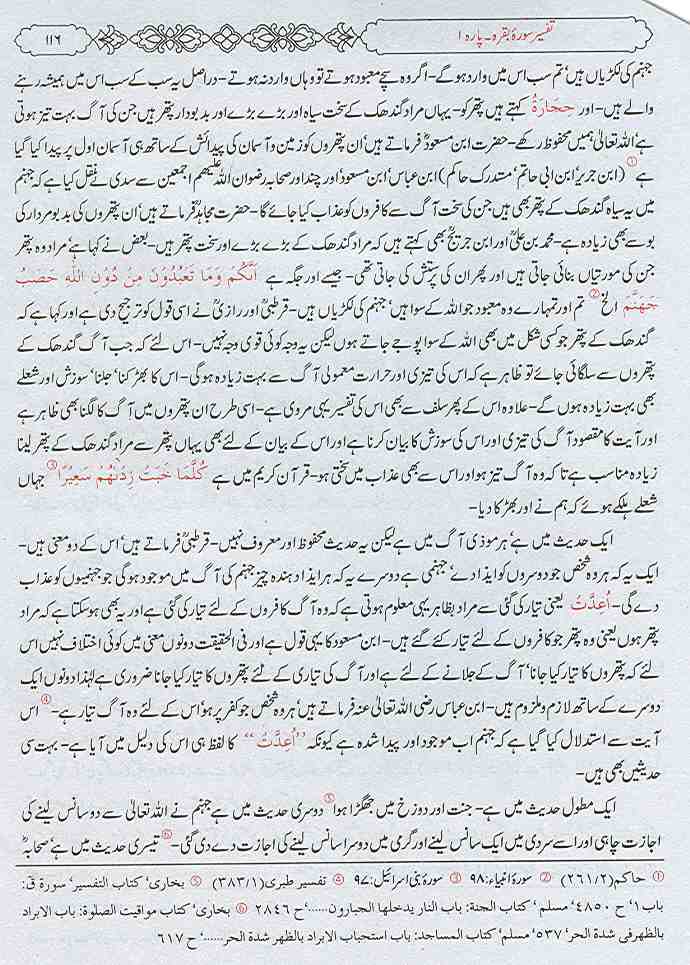 تفسیر سورۂ بقرہ۔ پارہ ۱
۱۱۶
جہنم کی لکڑیاں ہیں‘ تم سب اس میں وارد ہو گے- اگر وہ سچے معبود ہوتے تو وہاں وارد نہ ہوتے- دراصل یہ سب کے سب اس میں ہمیشہ رہنے
والے ہیں- اور حِجَارَۃُ کہتے ہیں پتھر کو- یہاں مراد گندھک کے سخت سیاہ اور بڑے بڑے اور بدبودار پتھر ہیں جن کی آگ بہت تیز ہوتی
ہے‘ اللہ تعالیٰ ہمیں محفوظ رکھے- حضرت ابن مسعودؓ فرماتے ہیں‘ ان پتھروں کو زمین و آسمان کی پیدائش کے ساتھ ہی آسمان اول پر پیدا کیا گیا
ہے① (ابن جریر‘ ابن ابی حاتم‘ مستدرک حاکم) ابن عباس‘ ابن مسعود اور چند اور صحابہ رضوان اللہ علیہم اجمعین سے سدی نے نقل کیا ہے کہ جہنم
میں یہ سیاہ گندھک کے پتھر بھی ہیں جن کی سخت آگ سے کافروں کو عذاب کیا جائے گا- حضرت مجاہدؒ فرماتے ہیں‘ ان پتھروں کی بدبو مردار کی
بو سے بھی زیادہ ہے- محمد بن علیؒ اور ابن جریجؒ بھی کہتے ہیں کہ مراد گندھک کے بڑے بڑے اور سخت پتھر ہیں- بعض نے کہا ہے‘ مراد وہ پتھر
جن کی مورتیاں بنائی جاتی ہیں اور پھر ان کی پرستش کی جاتی تھی- جیسے اور جگہ ہے اَنَّکُمْ وَمَا تَعْبُدُوْنَ مِنْ دُوْنِ اللّٰہِ حَصَبُ
جَھَنَّمَ الخ② تم اور تمہارے وہ معبود جو اللہ کے سوا ہیں‘ جہنم کی لکڑیاں ہیں- قرطبیؒ اور رازیؒ نے اسی قول کو ترجیح دی ہے اور کہا ہے کہ
گندھک کے پتھر جو کسی شکل میں بھی اللہ کے سوا پوجے جاتے ہوں لیکن یہ وجہ کوئی قوی وجہ نہیں- اس لئے کہ جب آگ گندھک کے
پتھروں سے سلگائی جائے تو ظاہر ہے کہ اس کی تیزی اور حرارت معمولی آگ سے بہت زیادہ ہو گی- اس کا بھڑکنا‘ جلنا‘ سوزش اور شعلے
بھی بہت زیادہ ہوں گے- علاوہ اس کے پھر سلف سے بھی اس کی تفسیر یہی مروی ہے- اسی طرح ان پتھروں میں آگ کا لگنا بھی ظاہر ہے
اور آیت کا مقصود آگ کی تیزی اور اس کی سوزش کا بیان کرنا ہے اور اس کے بیان کے لئے بھی یہاں پتھر سے مراد گندھک کے پتھر لینا
زیادہ مناسب ہے تاکہ وہ آگ تیز ہو اور اس سے بھی عذاب میں سختی ہو- قرآن کریم میں ہے کُلَّمَا خَبَتْ زِدْنٰھُمْ سَعِیْرًا③ جہاں
شعلے ہلکے ہوئے کہ ہم نے اور بھڑکا دیا-
ایک حدیث میں ہے‘ ہر موذی آگ میں ہے لیکن یہ حدیث محفوظ اور معروف نہیں- قرطبیؒ فرماتے ہیں‘ اس کے دو معنی ہیں-
ایک یہ کہ ہر وہ شخص جو دوسروں کو ایذا دے‘ جہنمی ہے دوسرے یہ کہ ہر ایذا دہندہ چیز جہنم کی آگ میں موجود ہو گی جو جہنمیوں کو عذاب
دے گی- اُعِدَّتْ یعنی تیار کی گئی سے مراد بظاہر یہی معلوم ہوتی ہے کہ وہ آگ کافروں کے لئے تیار کی گئی ہے اور یہ بھی ہو سکتا ہے کہ مراد
پتھر ہوں یعنی وہ پتھر جو کافروں کے لئے تیار کئے گئے ہیں- ابن مسعود کا یہی قول ہے اور فی الحقیقت دونوں معنی میں کوئی اختلاف نہیں اس
لئے کہ پتھروں کا تیار کیا جانا‘ آگ کے جلانے کے لئے ہے اور آگ کی تیاری کے لئے پتھروں کا تیار کیا جانا ضروری ہے لہٰذا دونوں ایک
دوسرے کے ساتھ لازم و ملزوم ہیں- ابن عباس رضی اللہ تعالیٰ عنہ فرماتے ہیں‘ ہر وہ شخص جو کفر پر ہو‘ اس کے لئے وہ آگ تیار ہے④- اس
آیت سے استدلال کیا گیا ہے کہ جہنم اب موجود اور پیدا شدہ ہے کیونکہ ’’اُعِدَّتْ‘‘ کا لفظ ہی اس کی دلیل میں آیا ہے- بہت سی
حدیثیں بھی ہیں-
ایک مطول حدیث میں ہے- جنت اور دوزخ میں جھگڑا ہوا⑤ دوسری حدیث میں ہے جہنم نے اللہ تعالیٰ سے دو سانس لینے کی
اجازت چاہی اور اسے سردی میں ایک سانس لینے اور گرمی میں دوسرا سانس لینے کی اجازت دے دی گئی-⑥ تیسری حدیث میں ہے‘ صحابہؓ
① حاکم (۲/۲۶۱) ② سورۂ انبیاء: ۹۸ ③ سورۂ بنی اسرائیل: ۹۷ ④ تفسیر طبری (۱/۳۸۳) ⑤ بخاری‘ کتاب التفسیر‘ سورۃ قٓ:
باب ۱‘ ح ۴۸۵۰‘ مسلم‘ کتاب الجنة: باب النار یدخلھا الجبارون......‘ ح ۲۸۴۶ ⑥ بخاری‘ کتاب مواقیت الصلوة: باب الابراد
بالظھر فی شدة الحر‘ ۵۳۷‘ مسلم‘ کتاب المساجد: باب استحباب الابراد بالظھر شدة الحر......‘ ح ۶۱۷